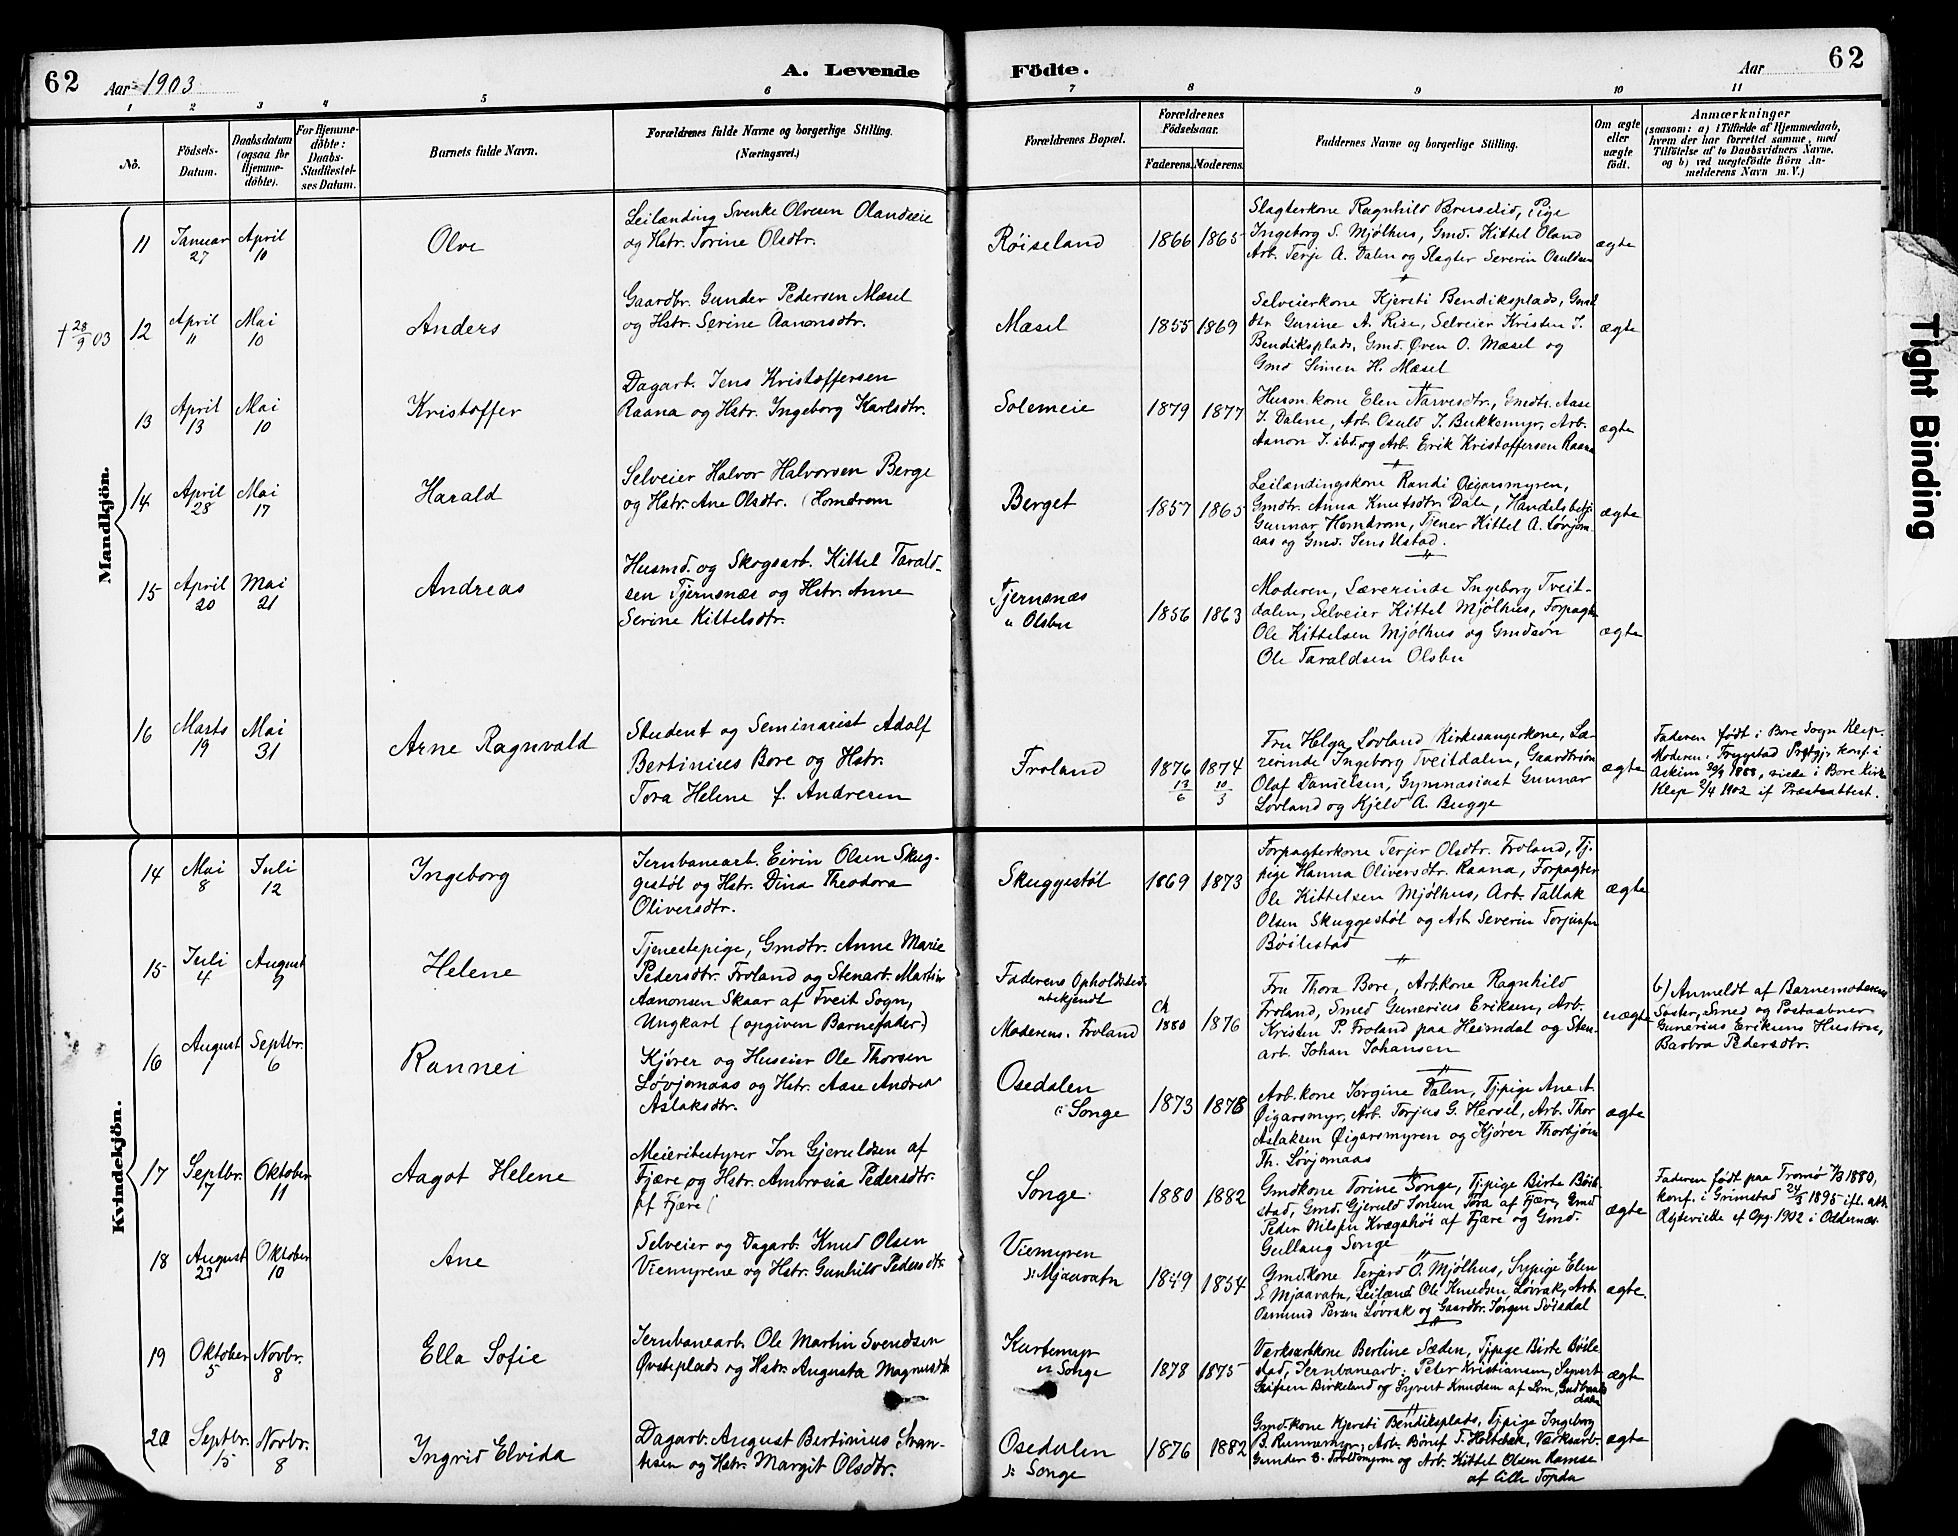 62
Aar 1903
A. Levende
Födte.
Aar
62
1 2 3 4 5 6 7 8 9 10 11
No.
Födsels-Datum.
Daabsdatum (ogsaa for Hjemme-döbte).
For Hjemme-döbte: Daabs-Stadfæstel-ses Datum.
Barnets fulde Navn.
Forældrenes fulde Navne og borgerlige Stilling.
(Næringsvei.)
Forældrenes Bopæl.
Forældrenes Födselsaar.
Faderens. Moderens.
Faddernes Navne og borgerlige Stilling.
Om ægte eller uægte födt.
Anmærkninger
(saasom: a) i Tilfælde af Hjemmedaab,
hvem der har forrettet samme, med
Tilföielse af to Daabsvidners Navne,
og b) ved uægtefödte Börn An-
melderens Navn m. V.)
Mandkjön.
11 Januar 27 April 10 Olve
Leilænding Svenke Olvesen Olandseie
og Hstr. Torine Olsdtr.
Røiseland 1866 1865
Slagterkone Ragnhild Bruselid, Pige
Ingeborg S. Mjølhus, Gmd. Kittel Oland
Arb. Terje A. Dalen og Slagter Severin Osuldsen
ægte
† 28/9 03
12 April 11 Mai 10 Anders
Gaardbr. Gunder Pedersen Mæsel
og Hstr. Serine Aanonsdtr.
Mæsel 1855 1869
Selveierkone Kjersti Bendiksplads, Gmd
dtr. Gurine A. Rise, Selveier Kristen J.
Bendiksplads, Gmd. Øven O. Mæsel og
Gmd Simen H. Mæsel
ægte
13 April 13 Mai 10 Kristoffer
Dagarb. Jens Kristoffersen
Raana og Hstr. Ingeborg Karlsdtr.
Solemeie 1879 1877
Husm.kone Elen Narvesdtr., Gmdtr. Aase
J. Dalene, Arb. Osuld J. Bukkemyr, Arb.
Aanon J. ibd. og Arb. Erik Kristoffersen Raana
ægte
14 April 28 Mai 17 Harald
Selveier Halvor Halvorsen Berge
og Hstr. Ane Olsdtr. (Homdrom
Berget 1857 1865
Leilændingskone Randi Øigarsmyren,
Gmdtr. Anna Knutsdtr. Dale, Handelsbetj.
Gunnar Homdrom, Tjener Kittel A. Løvjom-
aas og Gmd. Jens Ustad.
ægte
15 April 20 Mai 21 Andreas
Husmd. og Skogsarb. Kittel Tarald-
sen Tjernsnæs og Hstr. Anne
Serine Kittelsdtr.
Tjernsnæs
u Olsbu
1856 1863
Moderen, Lærerinde Ingeborg Tveit-
dalen, Selveier Kittel Mjølhus, Forpagter
Ole Kittelsen Mjølhus og Gmdsøn
Ole Taraldsen Olsbu
ægte
16 Marts 19 Mai 31 Arne Ragnvald
Student og Seminarist Adolf
Bertinius Bore og Hstr.
Tora Helene f. Andresen
Froland 1876 13/6 1874 10/3
Fru Helga Løvland Kirkesangerkone, Læ-
rerinde Ingeborg Tveitdalen, Gaardbrsøn
Olaf Danielsen, Gymnasiast Gunnar
Løvland og Kjeld A. Bugge
ægte
Faderen født i Bore Sogn Klep.
Moderen i Trygstad Prstgj. konf. i
Askim 30/9 1888, viede i Bore Kirke
Klep 2/4 1902 if Præsteattest.
Kvindekjön.
14 Mai 8 Juli 12 Ingeborg
Jernbanearb. Eivin Olsen Skug-
gestøl og Hstr. Dina Theodora
Oliversdtr.
Skuggestøl 1869 1873
Forpagterkone Terjer Olsdtr. Froland, Tj.
pige Hanna Oliversdtr. Raana, Forpagter
Ole Kittelsen Mjølhus, Arb. Tallak
Olsen Skuggestøl og Arb Severin Torjusen
Bøilestad
ægte
15 Juli 4 August 9 Helene
Tjenestepige, Gmdtr. Anne Marie
Pedersdtr. Froland og Stenarb. Martin
Aanonsen Skaar af Treit Sogn,
Ungkarl (opgiven Barnefader)
Faderens Opholdsted
ubekjendt
Moderens. Froland
Ca 1880 1876
Fru Thora Bore, Arb.kone Ragnhild
Froland, Smed Gunerius Eriksen, Arb.
Kristen P. Froland paa Heimdal og Sten-
arb. Johan Johansen
uægte
b) Anmeldt af Barnemoderens
Søster, Smed og Postaabner
Gunerius Eriksens Hustru,
Barbra Pedersdtr.
16 August 7 Septbr. 6 Rannei
Kjører og Huseier Ole Thorsen
Løvjomaas og Hstr. Aase Andrea
Aslaksdtr.
Osedalen
i Songe
1873 1878
Arb.kone Jorgine Dalen, Tj.pige Ane A.
Øigarsmyr, Arb. Torjus G. Hersel, Arb. Thor
Aslaksen Øigarsmyren og Kjører Thorbjørn
Th. Løvjomaas
ægte
17 Septbr. 17 Oktober 11 Aagot Helene
Meieribestyrer Jon Gjeruldsen af
Fjære og Hstr. Ambrosia Pedersdtr.
af Fjære (
Songe 1880 1882
Gmdkone Torine Songe, Tj.pige Birte Bøile-
stad, Gmd. Gjeruld Jonsen Tora af Fjære, Gmd
Peder Nilsen Krægshøi af Fjære og Gmd.
Gullaug Songe
ægte
Faderen født paa Tromø 1880,
konf. i Grimstad 24/3 1895 ift. att.
Ægteviede ef Opg. 1902 i Oddernæs
18 August 23 Oktober 10 Ane
Selveier og Dagarb. Knud Olsen
Viemyrene og Hstr. Gunhild Pedersdtr.
Viemyren
i Mjaavatn
1849 1854
Gmd.kone Terjerd O. Mjølhus, Sypige Elen
S. Mjaavatn, Leilænd Ole Knudsen Løvrak, Arb.
Osmund Persen Løvrak og Gaardbr. Jørgen Søisdal
ægte.
19 Oktober 5 Novbr. 8 Ella Sofie
Jernbanearb. Ole Martin Svendsen
Øvsteplads og Hstr. Augusta Magnusdtr
Kartemyr
u Songe
1878 1875
Værksarb.kone Berline Sæden, Tj.pige Birte Bøile
stad, Jernbanearb. Peter Kristiansen, Syvert
Birkeland og Syvert Knudsen af Lom, Gudbrands
dalen
ægte
20 Septbr. 15 Novbr. 8 Ingrid Elvida
Dagarb. August Bertinius Svan-
tesen og Hstr. Margit Olsdtr.
Osedalen
i Songe
1876 1882
Gmd.kone Kjersti Bendiksplads, Tj.pige Ingeborg
B. Runnemyr, Arb. Børuf T. Heltebæk, Værksarb.
Gunder og Arb. Kittel Olsen Ramse
af Lille Topda
ægte
Tight Binding